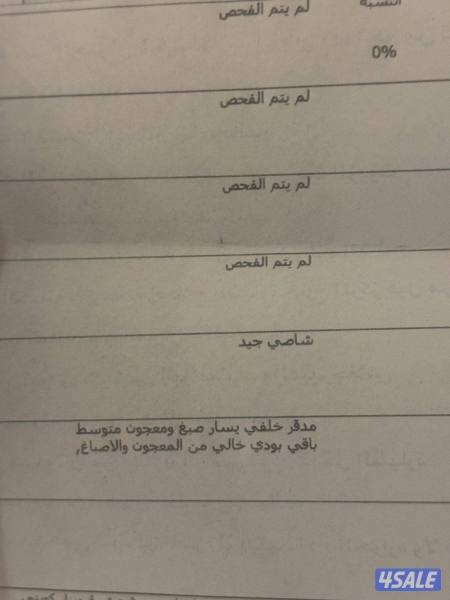 النسبة
لم يتم الفحص
0%
لم يتم الفحص
لم يتم الفحص
لم يتم الفحص
شاصي جيد
مدقر خلفي يسار صبغ ومعجون متوسط
باقي بودي خالي من المعجون والاصباغ,
4SALE